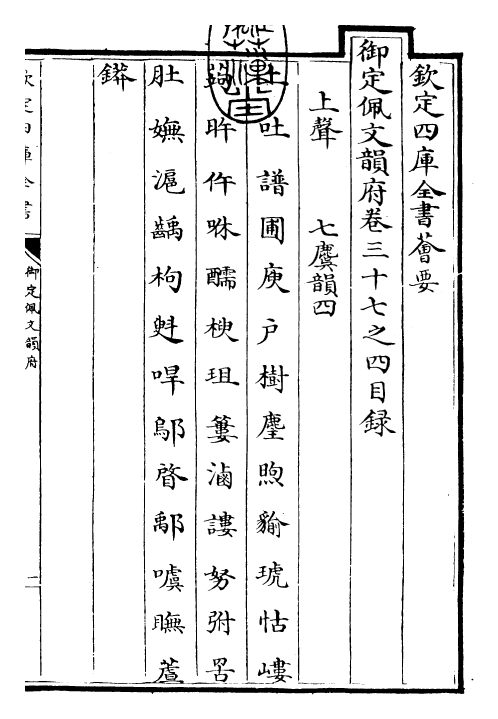 欽定四庫全書薈要
御定佩文韻府卷三十七之四目録
上聲 七麌韻四
土吐譜圃庾戶樹麈煦貐琥怙嶁
踽盱仵咮醹楰珇簍滷謱努弣罟
肚嫵滬齲枸㪺㖔鄔䁈鄅噳瞴蘆
䥈
欽定四庫全書
御定佩文韻府
一